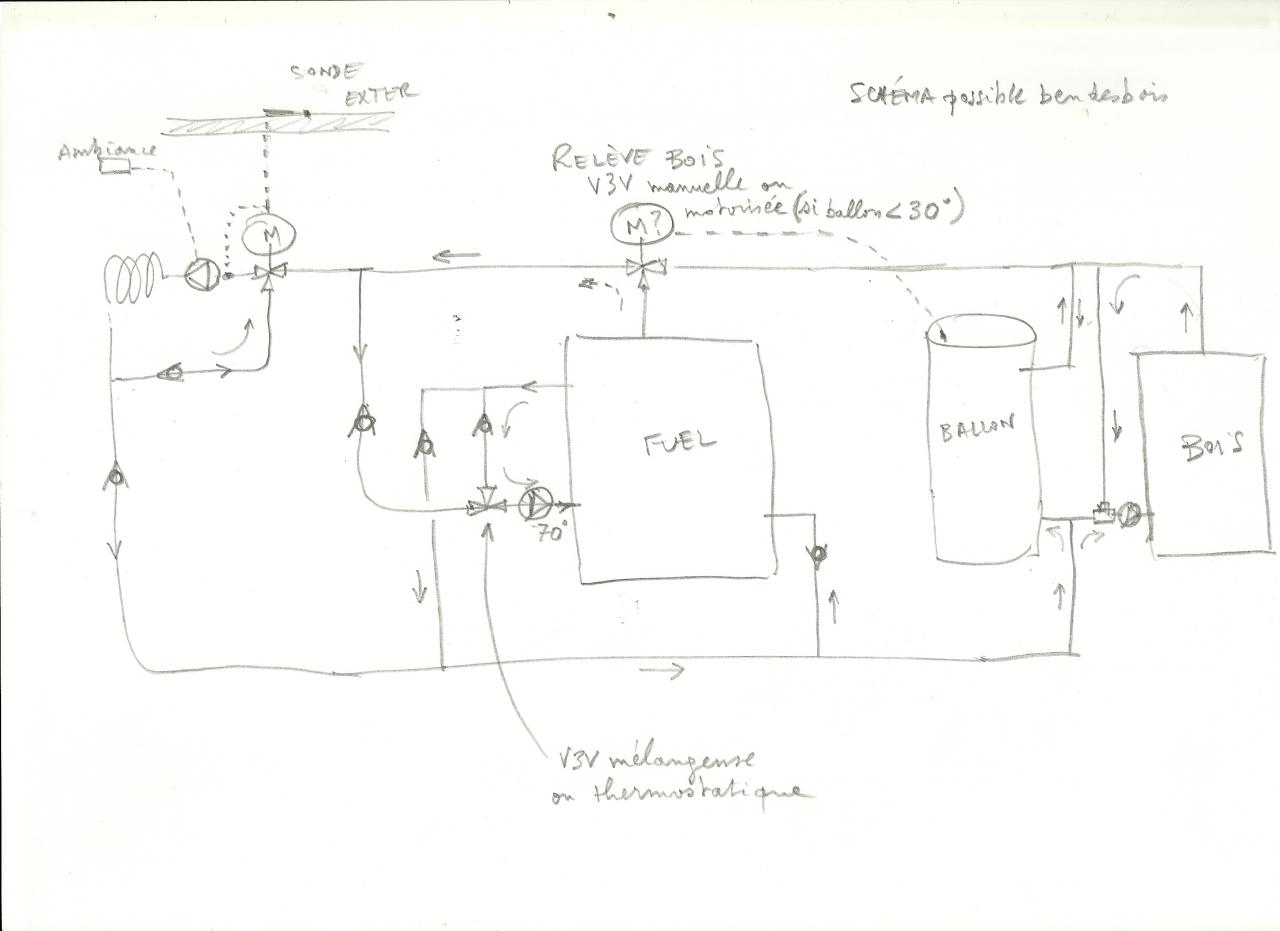 SONDE
EXTER
SCHÉMA possible bendesbois
Ambiance
RELÈVE BOIS
V3V manuelle ou
motorisée (si ballon < 30°)
M
M?
BALLON
FUEL
BOIS
70°
V3V mélangeuse
ou thermostatique